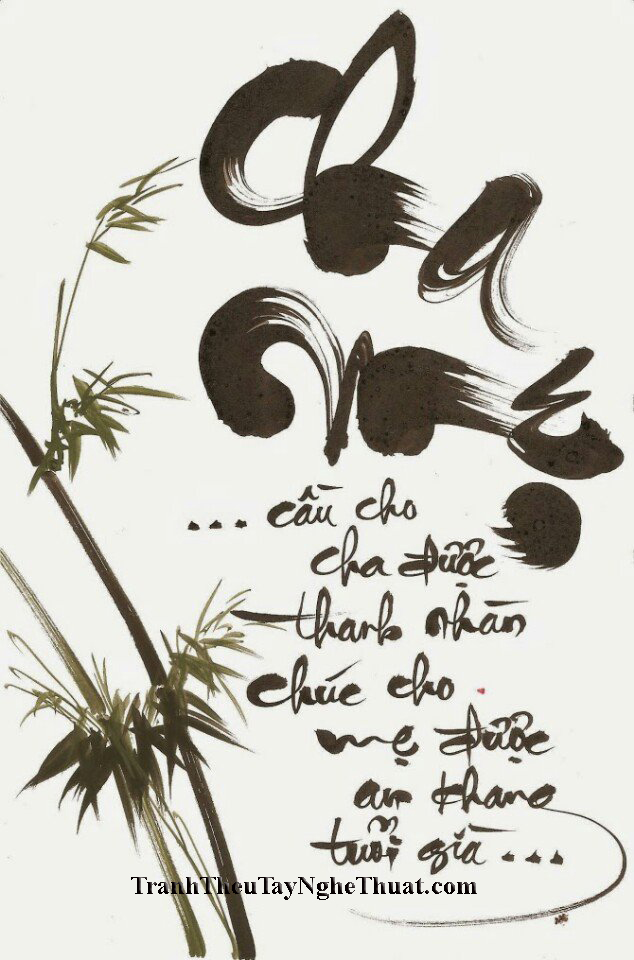 Cha
Mẹ
... cầu cho
cha được
thanh nhàn
chúc cho
mẹ được
an khang
tuổi già ...
TranhTheuTayNgheThuat.com